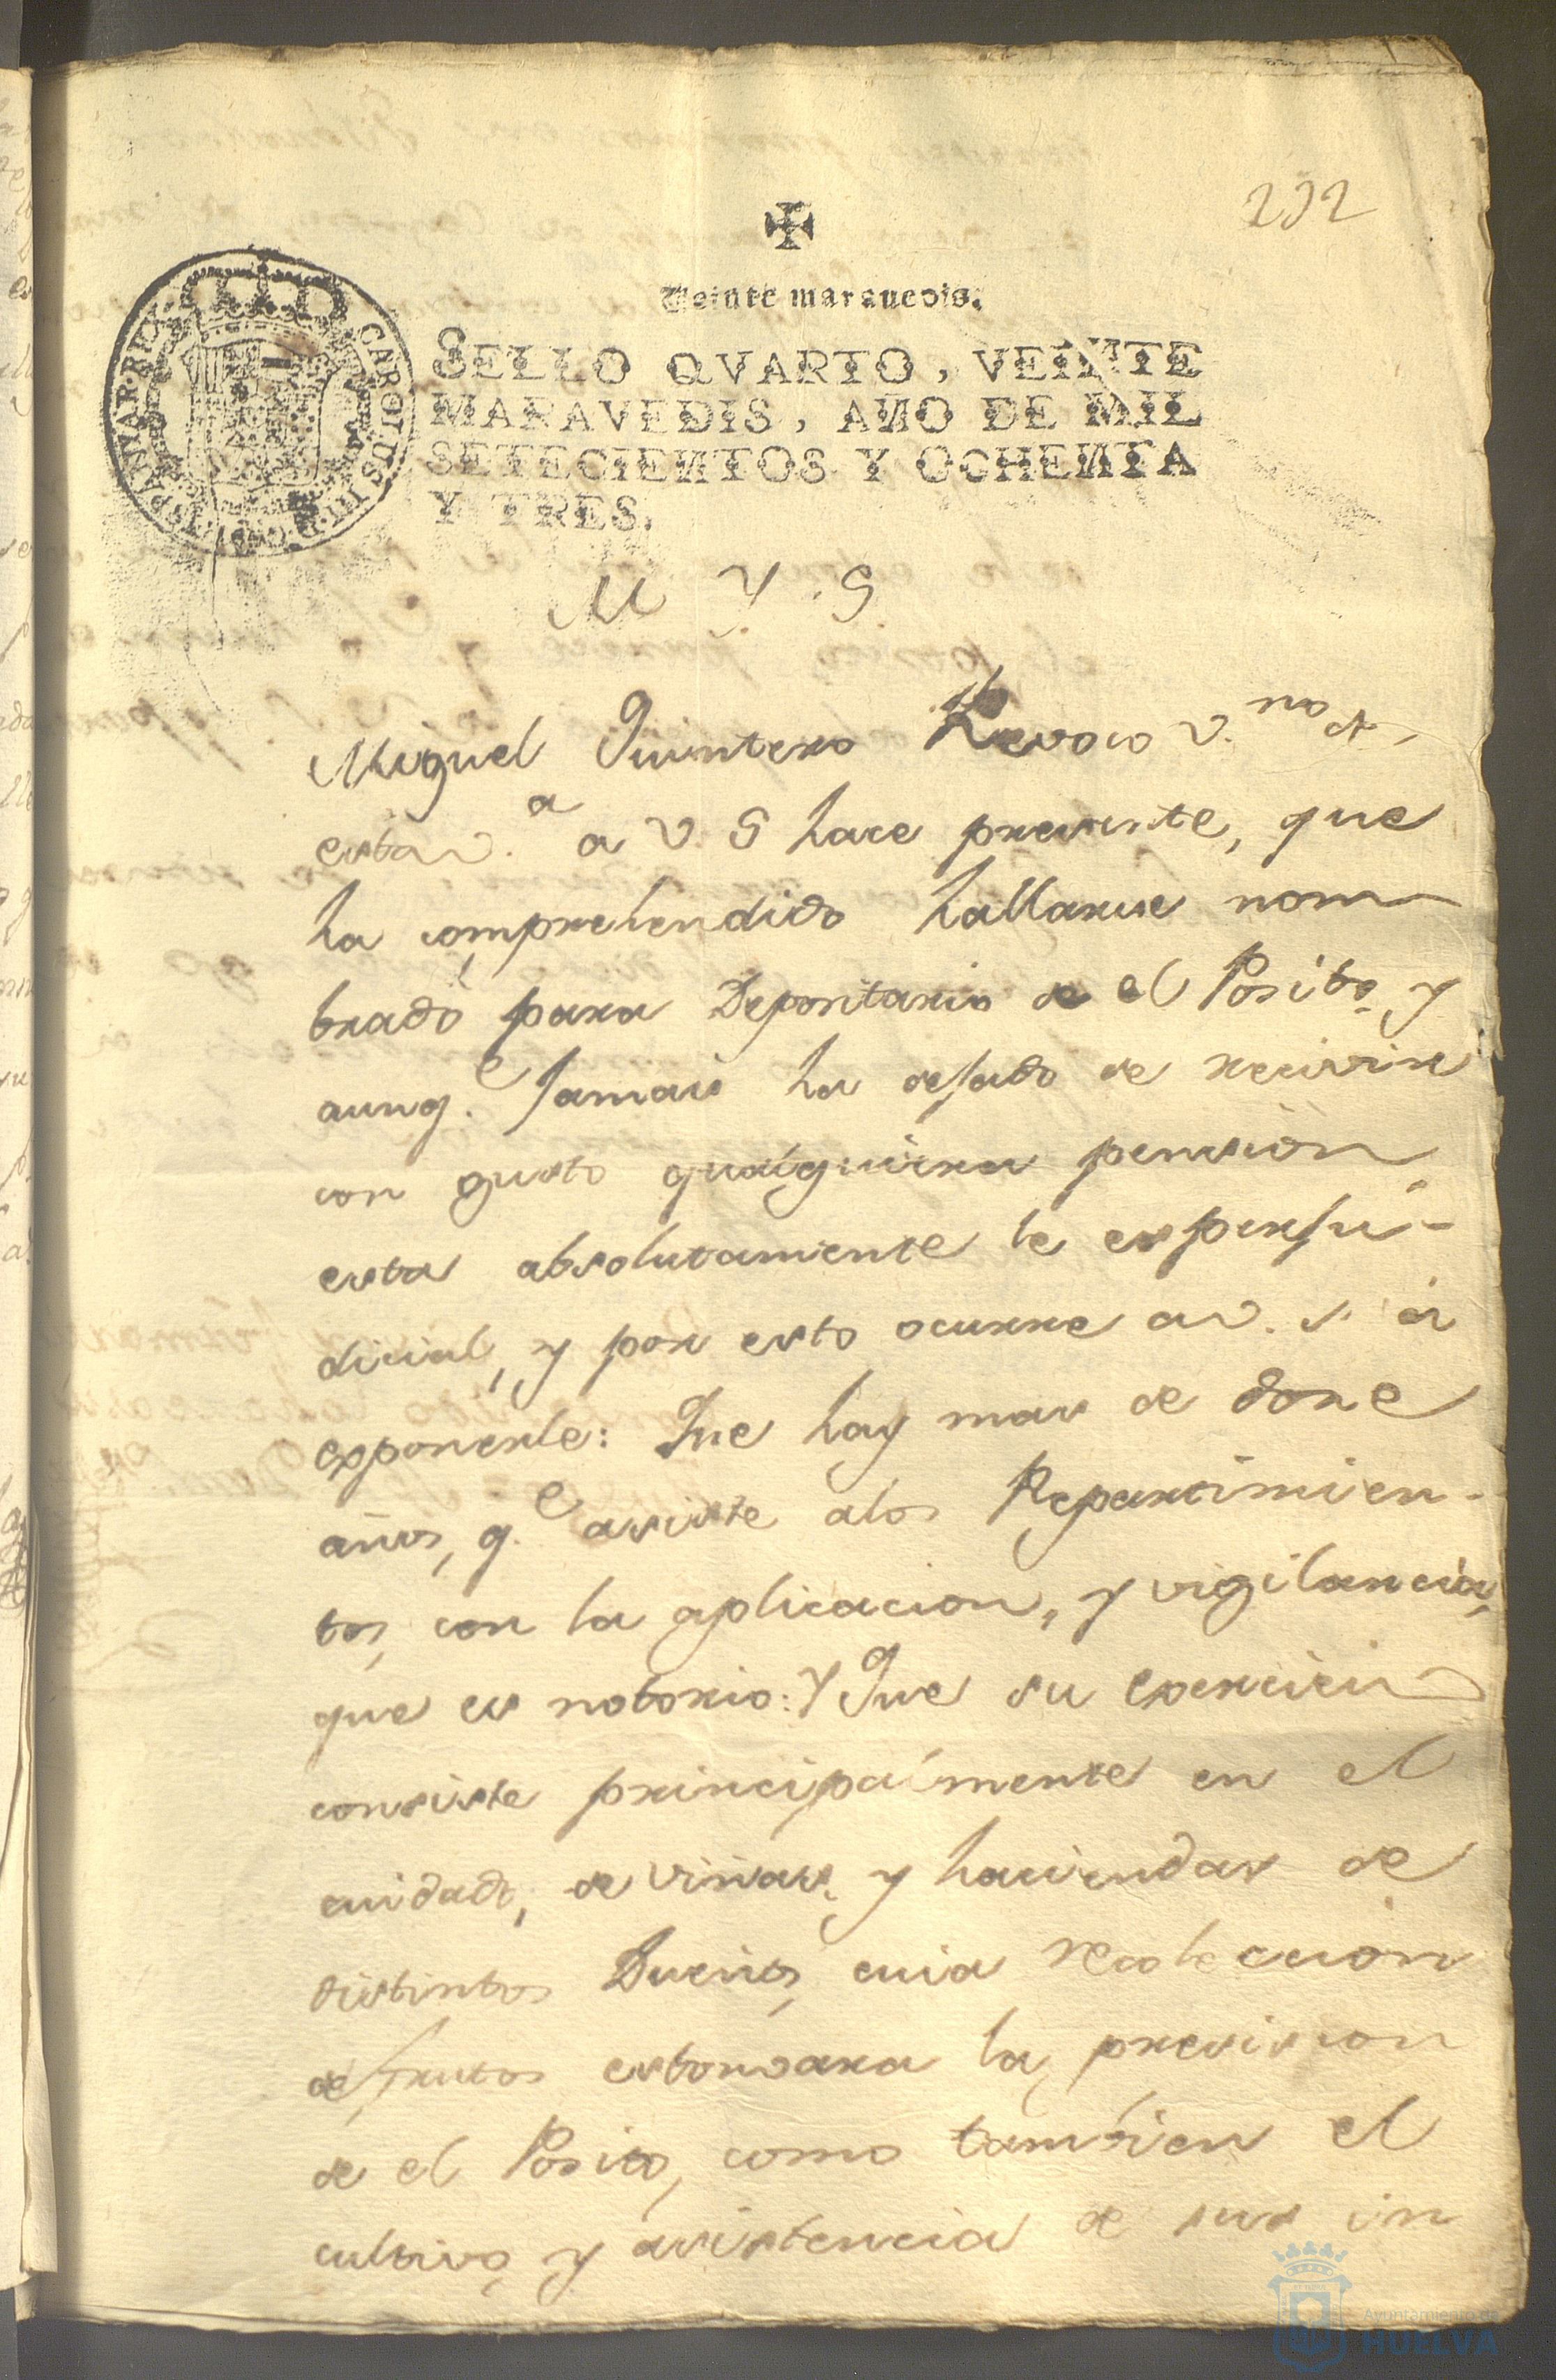 232
Veinte maravedis.
SELLO QVARTO, VEINTE
MARAVEDIS, AÑO DE MIL
SETECIENTOS Y OCHENTA
Y TRES.
CAROLUS III
M Y. S.
Miguel Quintero v.no de
esta v.a a V. S hace presente, que
ha comprehendido hallarse nom
brado para Depositario de el Posito, y
aunq.e Jamas ha dejado de recivir
con gusto qualquiera pension
esta absolutamente le es perju-
dicial, y por esto ocurre a V. S. á
exponerle: Que hay mas de doze
años, q.e asiste a los Repartimien-
tos, con la aplicacion, y vigilancia,
que es notorio: Y Que su exercicio
consiste principalmente en el
cuidado, de viñas, y haciendas de
distintos Dueños, cuia recoleccion
de frutos estorvara la precision
de el Posito, como tambien el
cultivo, y asistencia de sus in
Ayuntamiento de
HUELVA